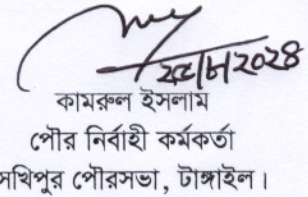 ২৫/৮/২০২৪
কামরুল ইসলাম
পৌর নির্বাহী কর্মকর্তা
সখিপুর পৌরসভা, টাঙ্গাইল।